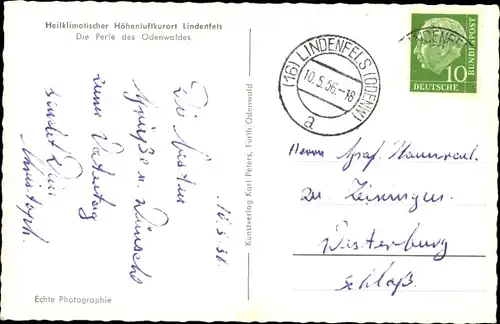 Heilklimatischer Höhenluftkurort Lindenfels
Die Perle des Odenwaldes
10.5.56.
Die besten
Grüße u. Wünsche
zum Vatertag
sendet Dir
Christoph.
Echte Photographie
Kunstverlag Karl Peters, Fürth.Odenwald
(16) LINDENFELS (ODENW)
10.5.56.-18
a
LINDENFELS
10
DEUTSCHE
BUNDESPOST
Herrn Graf
zu Leiningen
Westerburg
Schloß.